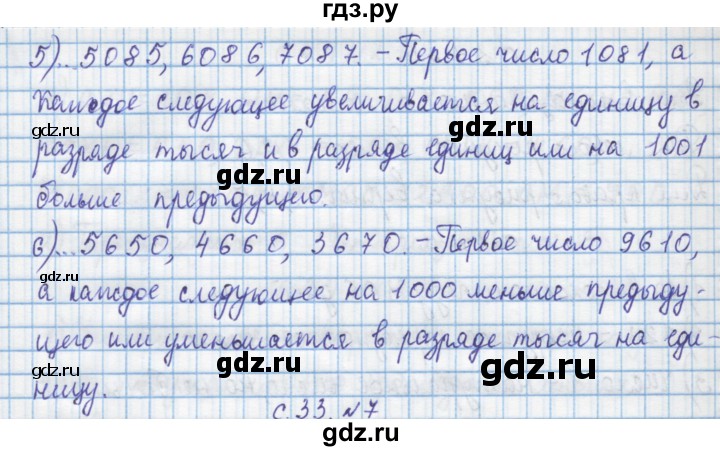 гдз.ру
5)...5085, 6086, 7087. - Первое число 1081, а
каждое следующее увеличивается на единицу в
разряде тысяч и в разряде единиц или на 1001
больше предыдущего.
6)...5650, 4660, 3670. - Первое число 9610,
а каждое следующее на 1000 меньше предыду-
щего или уменьшается в разряде тысяч на еди-
ницу.
с. 33. №7
gdz.ru
gdz.ru
gdz.ru
gdz.ru
gdz.ru
gdz.ru
gdz.ru
gdz.ru
gdz.ru
gdz.ru